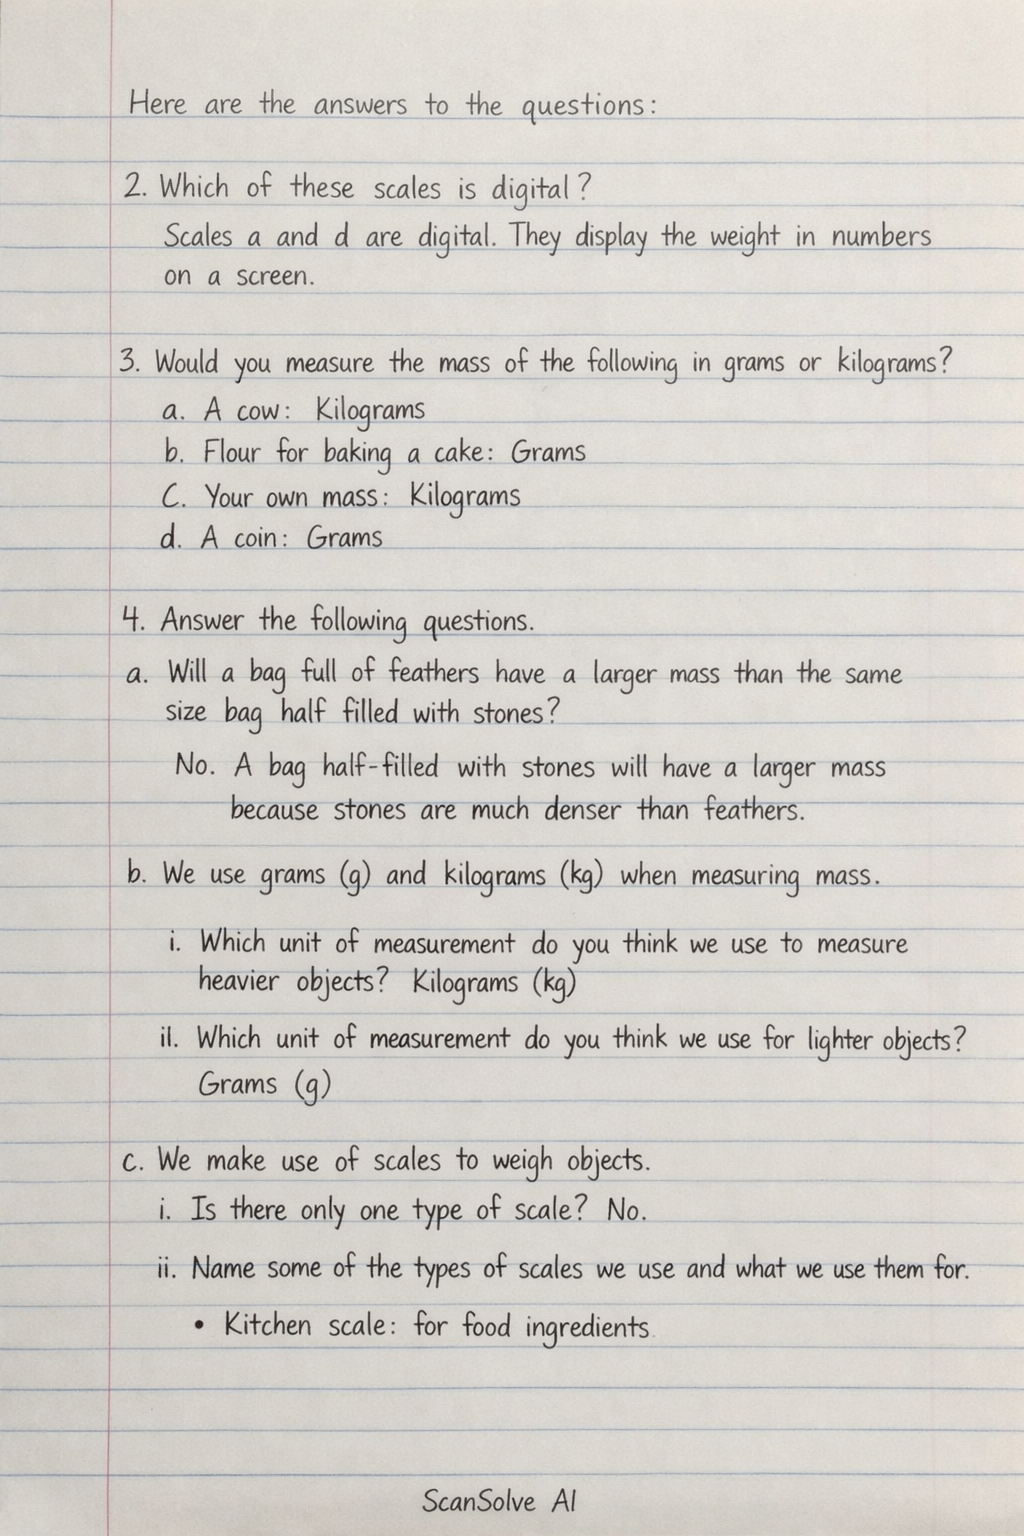 Here are the answers to the questions:
2. Which of these scales is digital?
Scales a and d are digital. They display the weight in numbers
on a screen.
3. Would you measure the mass of the following in grams or kilograms?
a. A cow: Kilograms
b. Flour for baking a cake: Grams
C. Your own mass: Kilograms
d. A coin: Grams
4. Answer the following questions.
a. Will a bag full of feathers have a larger mass than the same
size bag half filled with stones?
No. A bag half-filled with stones will have a larger mass
because stones are much denser than feathers.
b. We use grams (g) and kilograms (kg) when measuring mass.
i. Which unit of measurement do you think we use to measure
heavier objects? Kilograms (kg)
il. Which unit of measurement do you think we use for lighter objects?
Grams (g)
c. We make use of scales to weigh objects.
i. Is there only one type of scale? No.
ii. Name some of the types of scales we use and what we use them for.
• Kitchen scale: for food ingredients.
ScanSolve AI